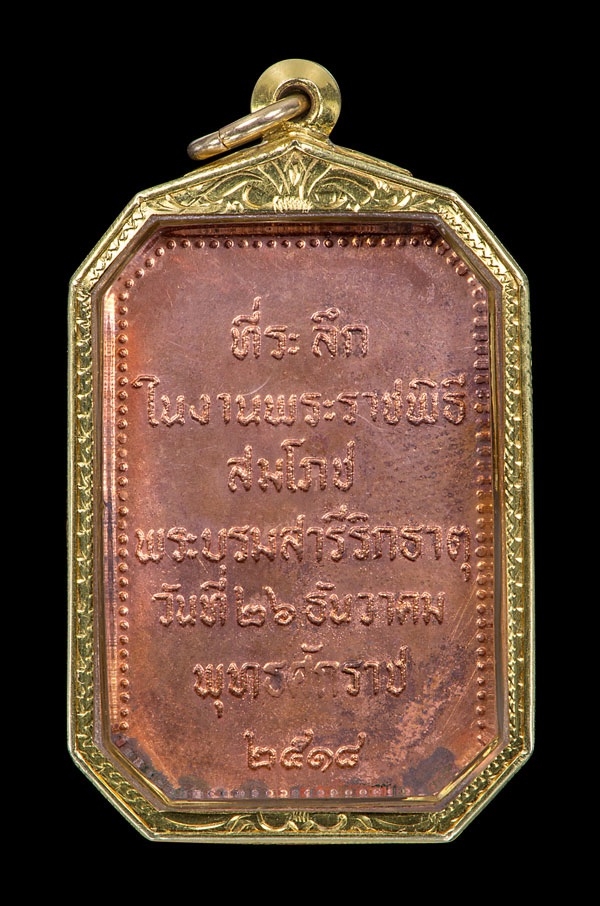 ที่ระลึก
ในงานพระราชพิธี
สมโภช
พระบรมสารีริกธาตุ
วันที่ ๒๖ ธันวาคม
พุทธศักราช
๒๕๑๘